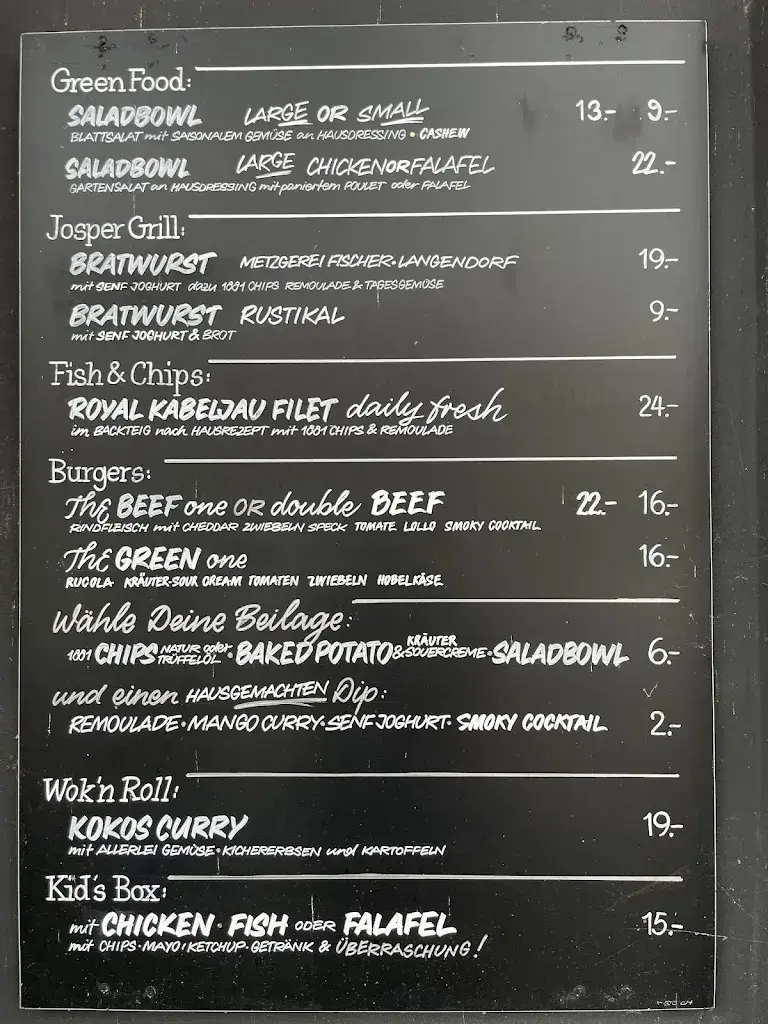 Green Food:
SALADBOWL LARGE OR SMALL 13.- 9.-
BLATTSALAT mit SAISONALEM GEMÜSE an HAUSDRESSING • CASHEW
SALADBOWL LARGE CHICKEN OR FALAFEL 22.-
GARTENSALAT an HAUSDRESSING mit paniertem POULET oder FALAFEL
Josper Grill:
BRATWURST METZGEREI FISCHER • LANGENDORF 19.-
mit SENF JOGHURT dazu 1001 CHIPS REMOULADE & TAGESGEMÜSE
BRATWURST RUSTIKAL 9.-
mit SENF JOGHURT & BROT
Fish & Chips:
ROYAL KABELJAU FILET daily fresh 24.-
im BACKTEIG nach HAUSREZEPT mit 1001 CHIPS & REMOULADE
Burgers:
The BEEF one OR double BEEF 22.- 16.-
RINDFLEISCH mit CHEDDAR ZWIEBELN SPECK TOMATE LOLLO SMOKY COCKTAIL
The GREEN one 16.-
RUCOLA KRÄUTER-SOUR CREAM TOMATEN ZWIEBELN HOBELKÄSE
Wähle Deine Beilage:
1001 CHIPS NATUR oder TRÜFFELÖL • BAKED POTATO & KRÄUTER SOUERCREME • SALADBOWL 6.-
und einen HAUSGEMACHTEN Dip:
REMOULADE • MANGO CURRY • SENF JOGHURT • SMOKY COCKTAIL 2.-
Wok'n Roll:
KOKOS CURRY 19.-
mit ALLERLEI GEMÜSE • KICHERERBSEN und KARTOFFELN
Kid's Box:
mit CHICKEN • FISH ODER FALAFEL 15.-
mit CHIPS • MAYO / KETCHUP • GETRÄNK & ÜBERRASCHUNG!